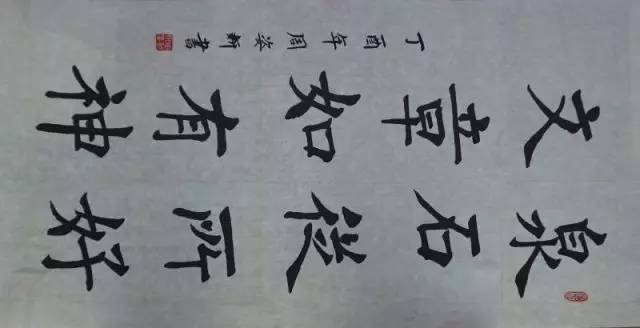 泉石從所好
文章如有神
丁酉年周書